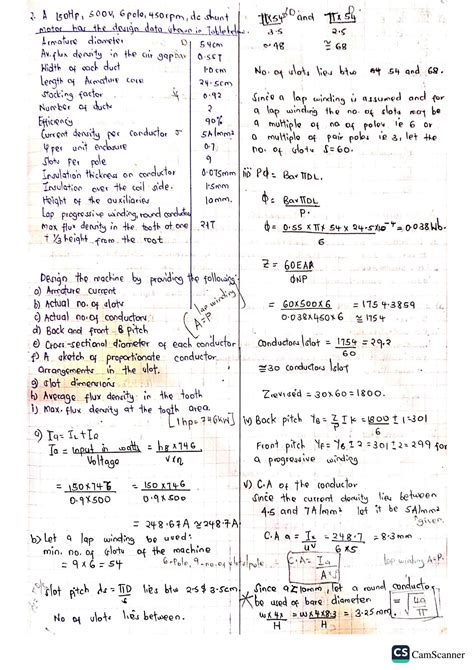 2. A 150HP, 500V, 6pole, 450rpm, dc shunt
motor has the design data shown in Table below.
Armature diameter 54cm
Av. flux density in the air gap 0.55T
Width of each duct 1.0cm
Length of Armature core 24.5cm
Stacking factor 0.92
Number of ducts 2
Efficiency 90%
Current density per conductor 5A/mm²
ψ per unit enclosure 0.7
Slots per pole 9
Insulation thickness on conductor 0.075mm
Insulation over the coil side. 1.5mm
Height of the auxiliaries 10mm.
Lap progressive winding, round conductor
Max flux density in the tooth at one 2.1T
+ 1/3 height from the root
Design the machine by providing the following:
a) Armature current
b) Actual no. of slots
c) Actual no. of conductors
d) Back and front & pitch
e) Cross-sectional diameter of each conductor
f) A sketch of proportionate conductor
arrangements in the slot.
g) Slot dimensions
h) Average flux density in the tooth
i) Max. flux density at the tooth area.
(lap winding A=P)
[1hp = 746kW]
a) Ia = IL + IR
Ia = input in watts = hp x 746
Voltage Vxη
= 150x746 = 150x746
0.9x500 0.9x500
= 248.67A ≅ 248.7A.
b) Let a lap winding be used:
min. no. of slots of the machine
= 9 x 6 = 54
6-Pole, 9-no. of slots/pole
Slot pitch λs = πD lies btw 2.5 & 3.5cm.
No of slots lies between.
πx54 and πx54
3.5 2.5
0.48 ≅ 68
No. of slots lies btw 54 and 68.
Since a lap winding is assumed and for
a lap winding the no. of slots may be
a multiple of no of poles ie 6 or
a multiple of pair poles ie 3, let the
no. of slots S=60.
iii) PΦ = Bav πDL.
Φ = Bav πDL
P.
Φ = 0.55 x π x 54 x 24.5x10⁻⁴ = 0.038Wb.
6
Z = 60EaA
ΦNP
= 60x500x6 = 1754.3859
0.038x450x6 ≅ 1754
Conductors/slot = 1754 = 29.2
60
≅ 30 conductors/slot
Zrevised = 30x60 = 1800.
iv) Back pitch YB = Z/P ± K = 1800/6 ± 1 = 301
Front pitch YF = YB ± 2 = 301 ± 2 = 299 for
a progressive winding
v) C.A of the conductor
Since the current density lies between
4.5 and 7A/mm² let it be 5A/mm²
given.
C.A a = Ia = 248.7 = 8.3mm
6x5
C.A = Ia
A
lap winding A=P.
Since a ≤ 10mm, let a round conductor
be used of bare diameter = √4a/π
= 4x8.3 = 3.25mm.
π
CS CamScanner